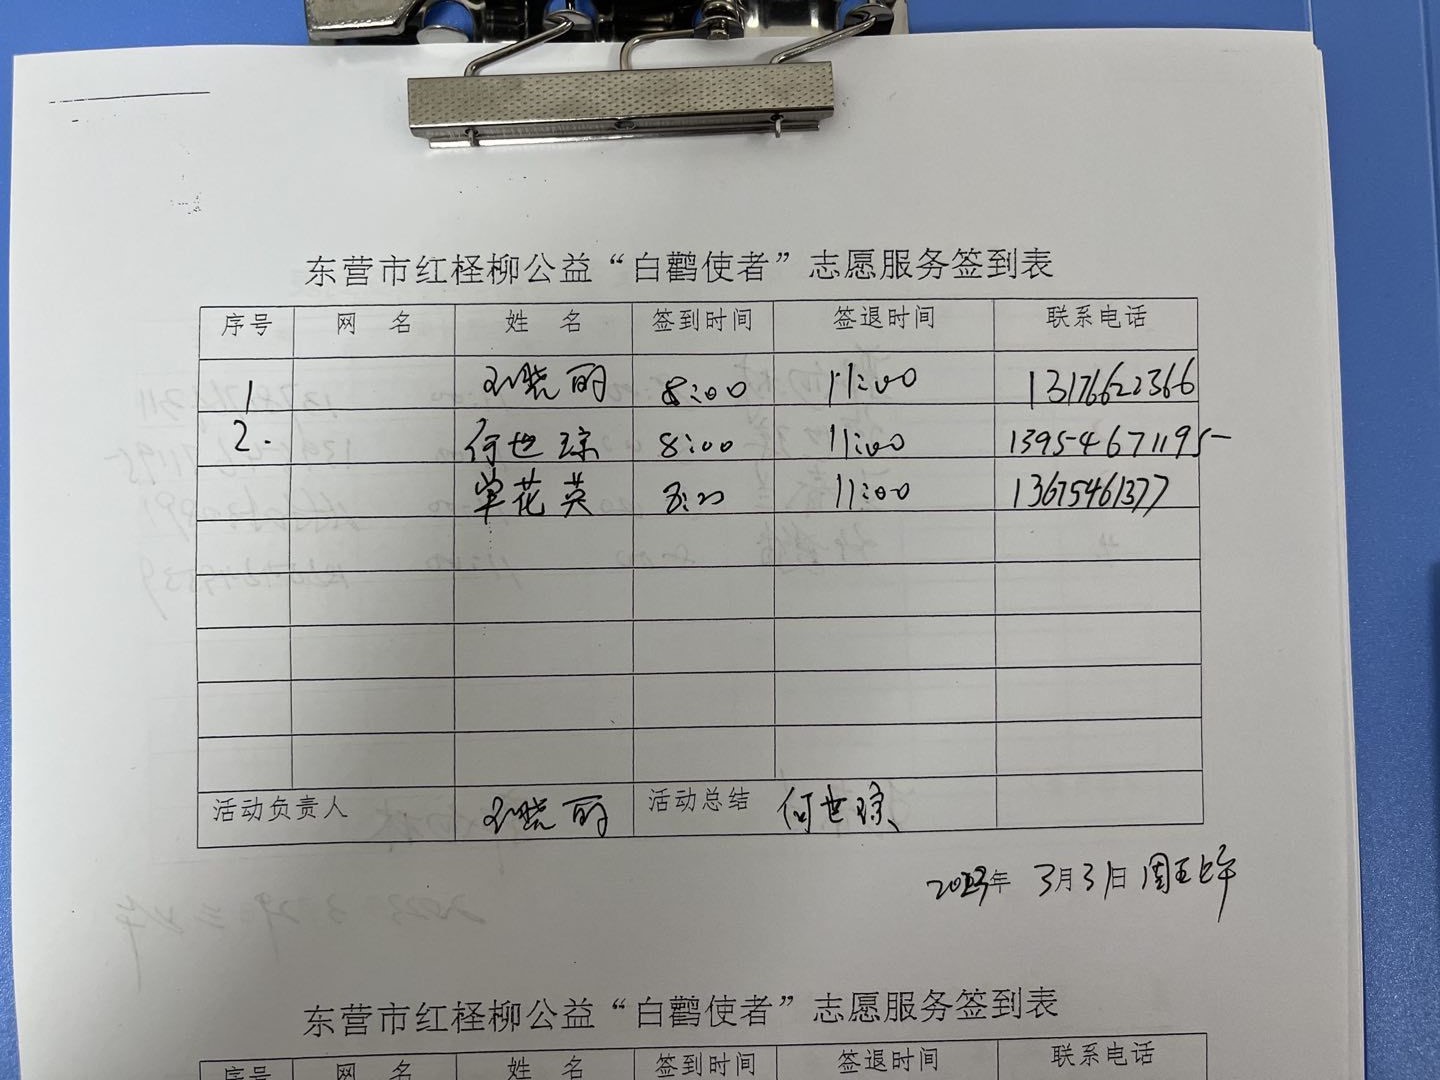 东营市红柽柳公益“白鹳使者”志愿服务签到表
序号 网 名 姓 名 签到时间 签退时间 联系电话
1 刘晓丽 8:00 11:00 13176622366
2. 何世琼 8:00 11:00 13954671195
单花英 8:00 11:00 13675461377
活动负责人 刘晓丽 活动总结 何世琼
2023年 3月31日 周五上午
东营市红柽柳公益“白鹳使者”志愿服务签到表
序号 网 名 姓 名 签到时间 签退时间 联系电话